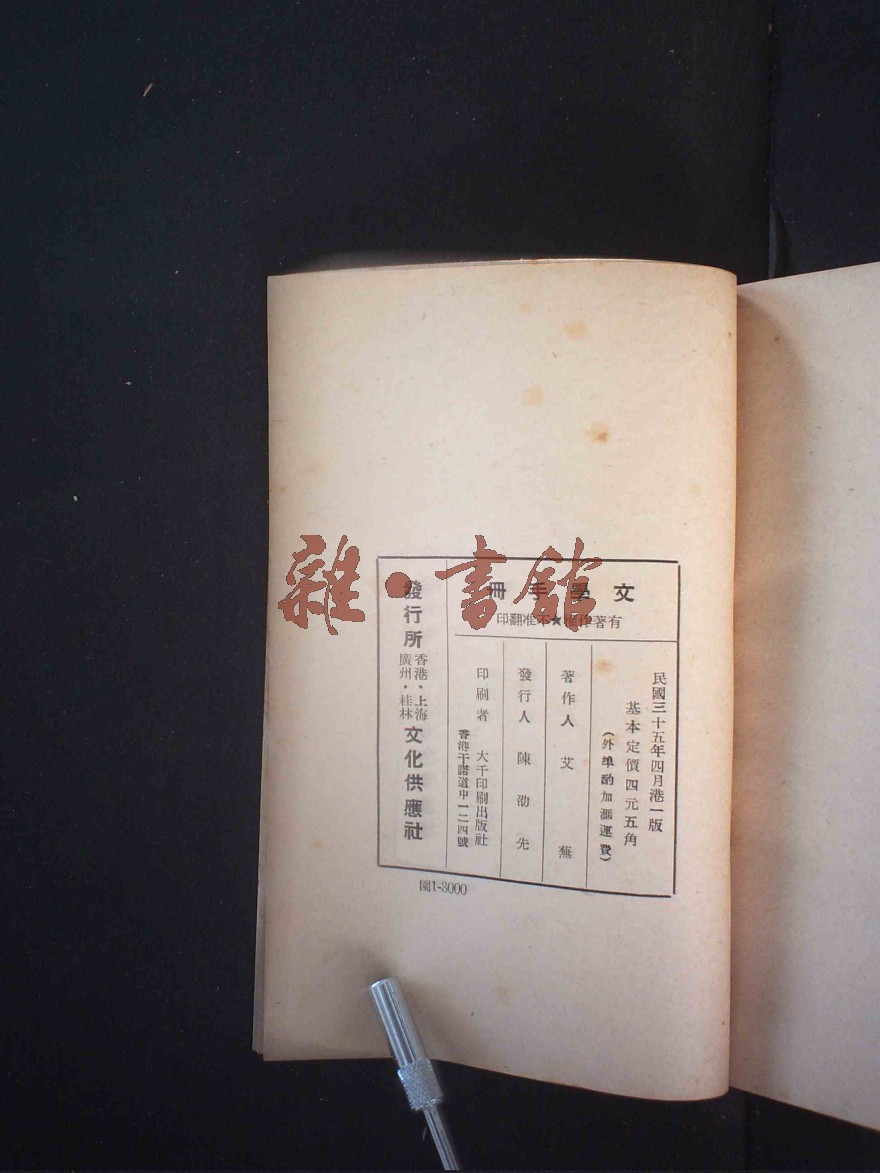 文學手冊
有著作權★不准翻印
民國三十五年四月港一版
基本定價四元五角
(外埠酌加滙運費)
著作人 艾蕪
發行人 陳劭先
印刷者 大千印刷出版社
香港干諾道中一二四號
發行所 香港·上海 廣州·桂林 文化供應社
1-3000
雜·書館